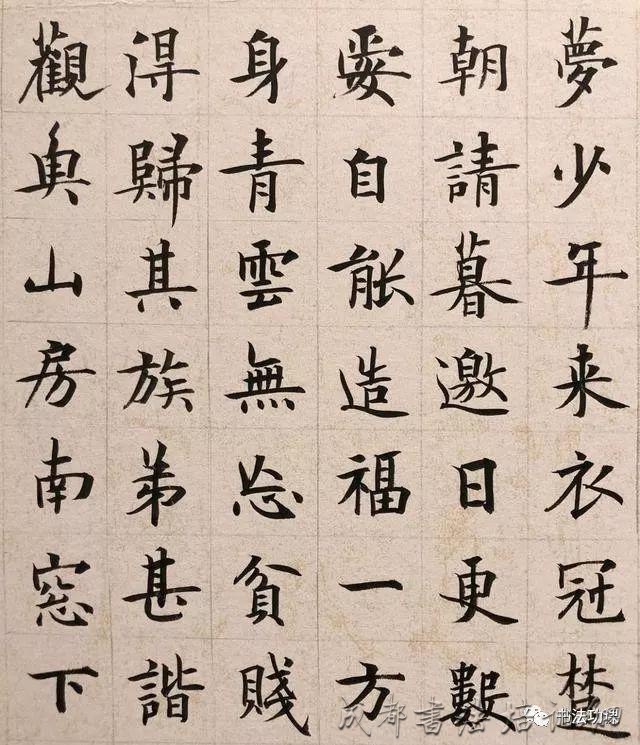 夢少年来衣冠楚
朝請暮邀日更數
自能造福一方
身青雲無忘貧賤
得歸其族弟甚諧
觀山房南窓下
成都書法培
书法功课